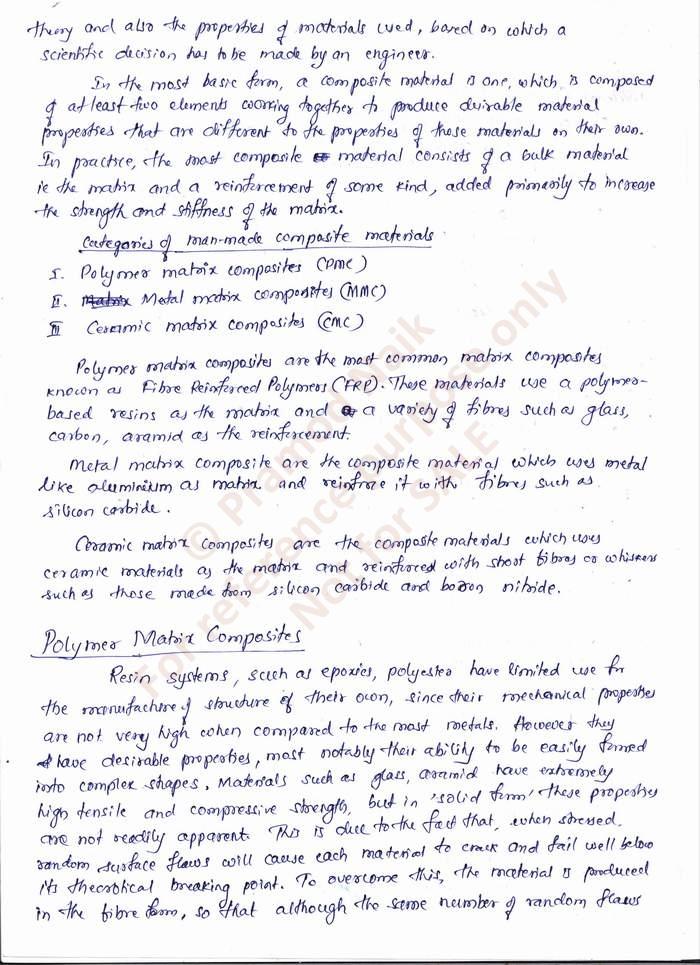 theory and also the properties of materials used, based on which a
scientific decision has to be made by an engineer.
In the most basic form, a composite material is one, which is composed
of at least two elements working together to produce desirable material
properties that are different to the properties of those materials on their own.
In practice, the most composite material consists of a bulk material
ie the matrix and a reinforcement of some kind, added primarily to increase
the strength and stiffness of the matrix.
Categories of man-made composite materials
I. Polymer matrix composites (PMC)
II. Matrix Metal matrix composites (MMC)
III Ceramic matrix composites (CMC)
Polymer matrix composites are the most common matrix composites
known as Fibre Reinforced Polymers (FRP). These materials use a polymer-
based resins as the matrix and a variety of fibres such as glass,
carbon, aramid as the reinforcement.
Metal matrix composite are the composite material which uses metal
like aluminium as matrix and reinforce it with fibres such as
silicon carbide.
Ceramic matrix composites are the composite materials which uses
ceramic materials as the matrix and reinforced with short fibres or whiskers
such as those made from silicon carbide and boron nitride.
Polymer Matrix Composites
Resin systems, such as epoxies, polyester have limited use for
the manufacture of structure of their own, since their mechanical properties
are not very high when compared to the most metals. However they
have desirable properties, most notably their ability to be easily formed
into complex shapes. Materials such as glass, aramid have extremely
high tensile and compressive strength, but in 'solid form' these properties
are not readily apparent. This is due to the fact that, when stressed.
random surface flaws will cause each material to crack and fail well below
its theorotical breaking point. To overcome this, the material is produced
in the fibre form, so that although the same number of random flaws
© Pramod Naik
For reference purpose only
Not for SALE